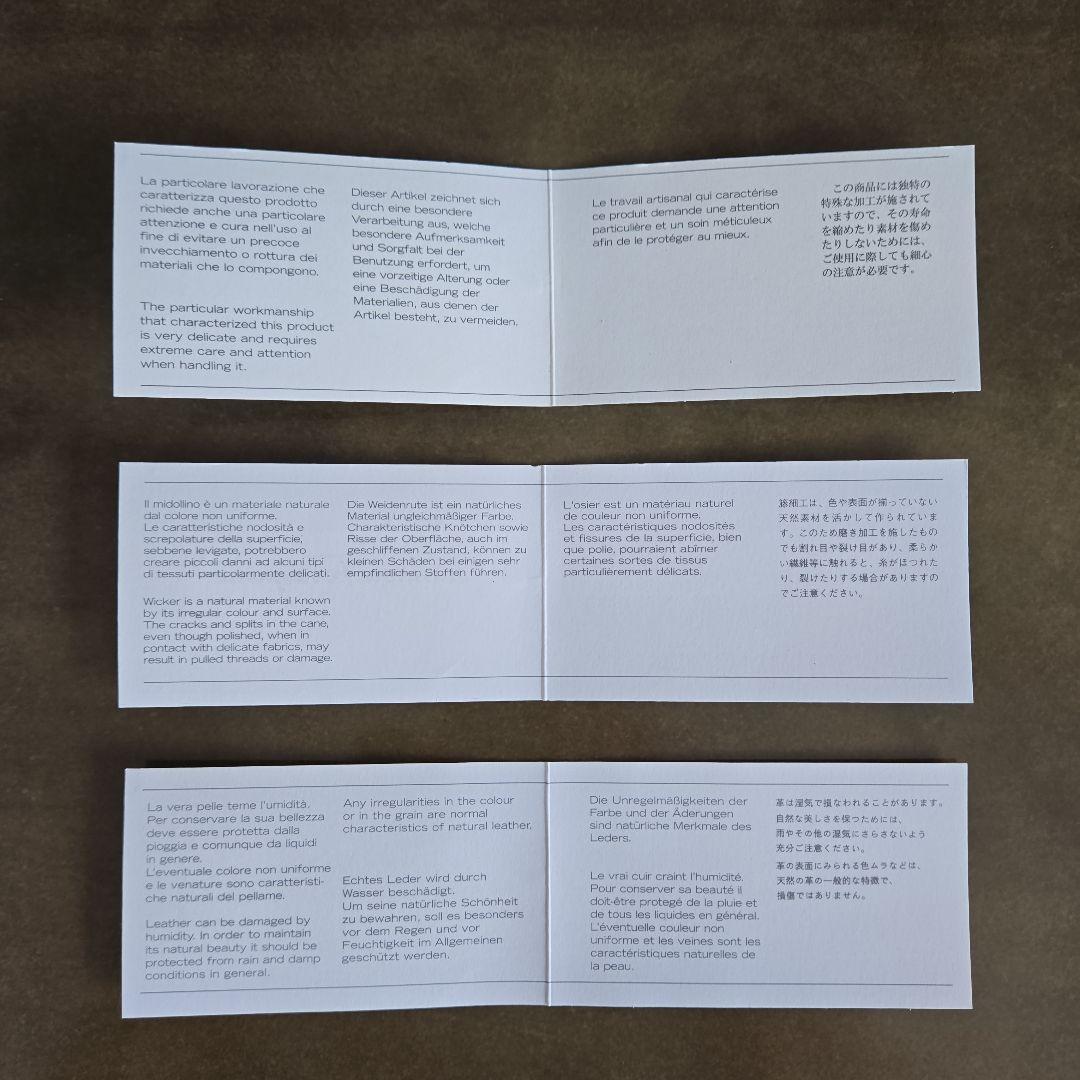 La particolare lavorazione che
caratterizza questo prodotto
richiede anche una particolare
attenzione e cura nell'uso al
fine di evitare un precoce
invecchiamento o rottura dei
materiali che lo compongono.
The particular workmanship
that characterized this product
is very delicate and requires
extreme care and attention
when handling it.
Dieser Artikel zeichnet sich
durch eine besondere
Verarbeitung aus, welche
besondere Aufmerksamkeit
und Sorgfalt bei der
Benutzung erfordert, um
eine vorzeitige Alterung oder
eine Beschädigung der
Materialien, aus denen der
Artikel besteht, zu vermeiden.
Le travail artisanal qui caractérise
ce produit demande une attention
particulière et un soin méticuleux
afin de le protéger au mieux.
この商品には独特の
特殊な加工が施されて
いますので、その寿命
を縮めたり素材を傷め
たりしないためには、
ご使用に際しても細心
の注意が必要です。
Il midollino è un materiale naturale
dal colore non uniforme.
Le caratteristiche nodosità e
screpolature della superficie,
sebbene levigate, potrebbero
creare piccoli danni ad alcuni tipi
di tessuti particolarmente delicati.
Wicker is a natural material known
by its irregular colour and surface.
The cracks and splits in the cane,
even though polished, when in
contact with delicate fabrics, may
result in pulled threads or damage.
Die Weidenrute ist ein natürliches
Material ungleichmäßiger Farbe.
Charakteristische Knötchen sowie
Risse der Oberfläche, auch im
geschliffenen Zustand, können zu
kleinen Schäden bei einigen sehr
empfindlichen Stoffen führen.
L'osier est un matériau naturel
de couleur non uniforme.
Les caractéristiques nodosités
et fissures de la superficie, bien
que polie, pourraient abîmer
certaines sortes de tissus
particulièrement délicats.
籐細工は、色や表面が揃っていない
天然素材を活かして作られていま
す。このため磨き加工を施したもの
でも割れ目や裂け目があり、柔らか
い繊維等に触れると、糸がほつれた
り、裂けたりする場合がありますの
でご注意ください。
La vera pelle teme l'umidità.
Per conservare la sua bellezza
deve essere protetta dalla
pioggia e comunque da liquidi
in genere.
L'eventuale colore non uniforme
e le venature sono caratteristi-
che naturali del pellame.
Leather can be damaged by
humidity. In order to maintain
its natural beauty it should be
protected from rain and damp
conditions in general.
Any irregularities in the colour
or in the grain are normal
characteristics of natural leather.
Echtes Leder wird durch
Wasser beschädigt.
Um seine natürliche Schönheit
zu bewahren, soll es besonders
vor dem Regen und vor
Feuchtigkeit im Allgemeinen
geschützt werden.
Die Unregelmäßigkeiten der
Farbe und der Äderungen
sind natürliche Merkmale des
Leders.
Le vrai cuir craint l'humidité.
Pour conserver sa beauté il
doit-être protegé de la pluie et
de tous les liquides en général.
L'éventuelle couleur non
uniforme et les veines sont les
caractéristiques naturelles de
la peau.
革は湿気で損なわれることがあります。
自然な美しさを保つためには、
雨やその他の湿気にさらさないよう
充分ご注意ください。
革の表面にみられる色ムラなどは、
天然の革の一般的な特徴で、
損傷ではありません。